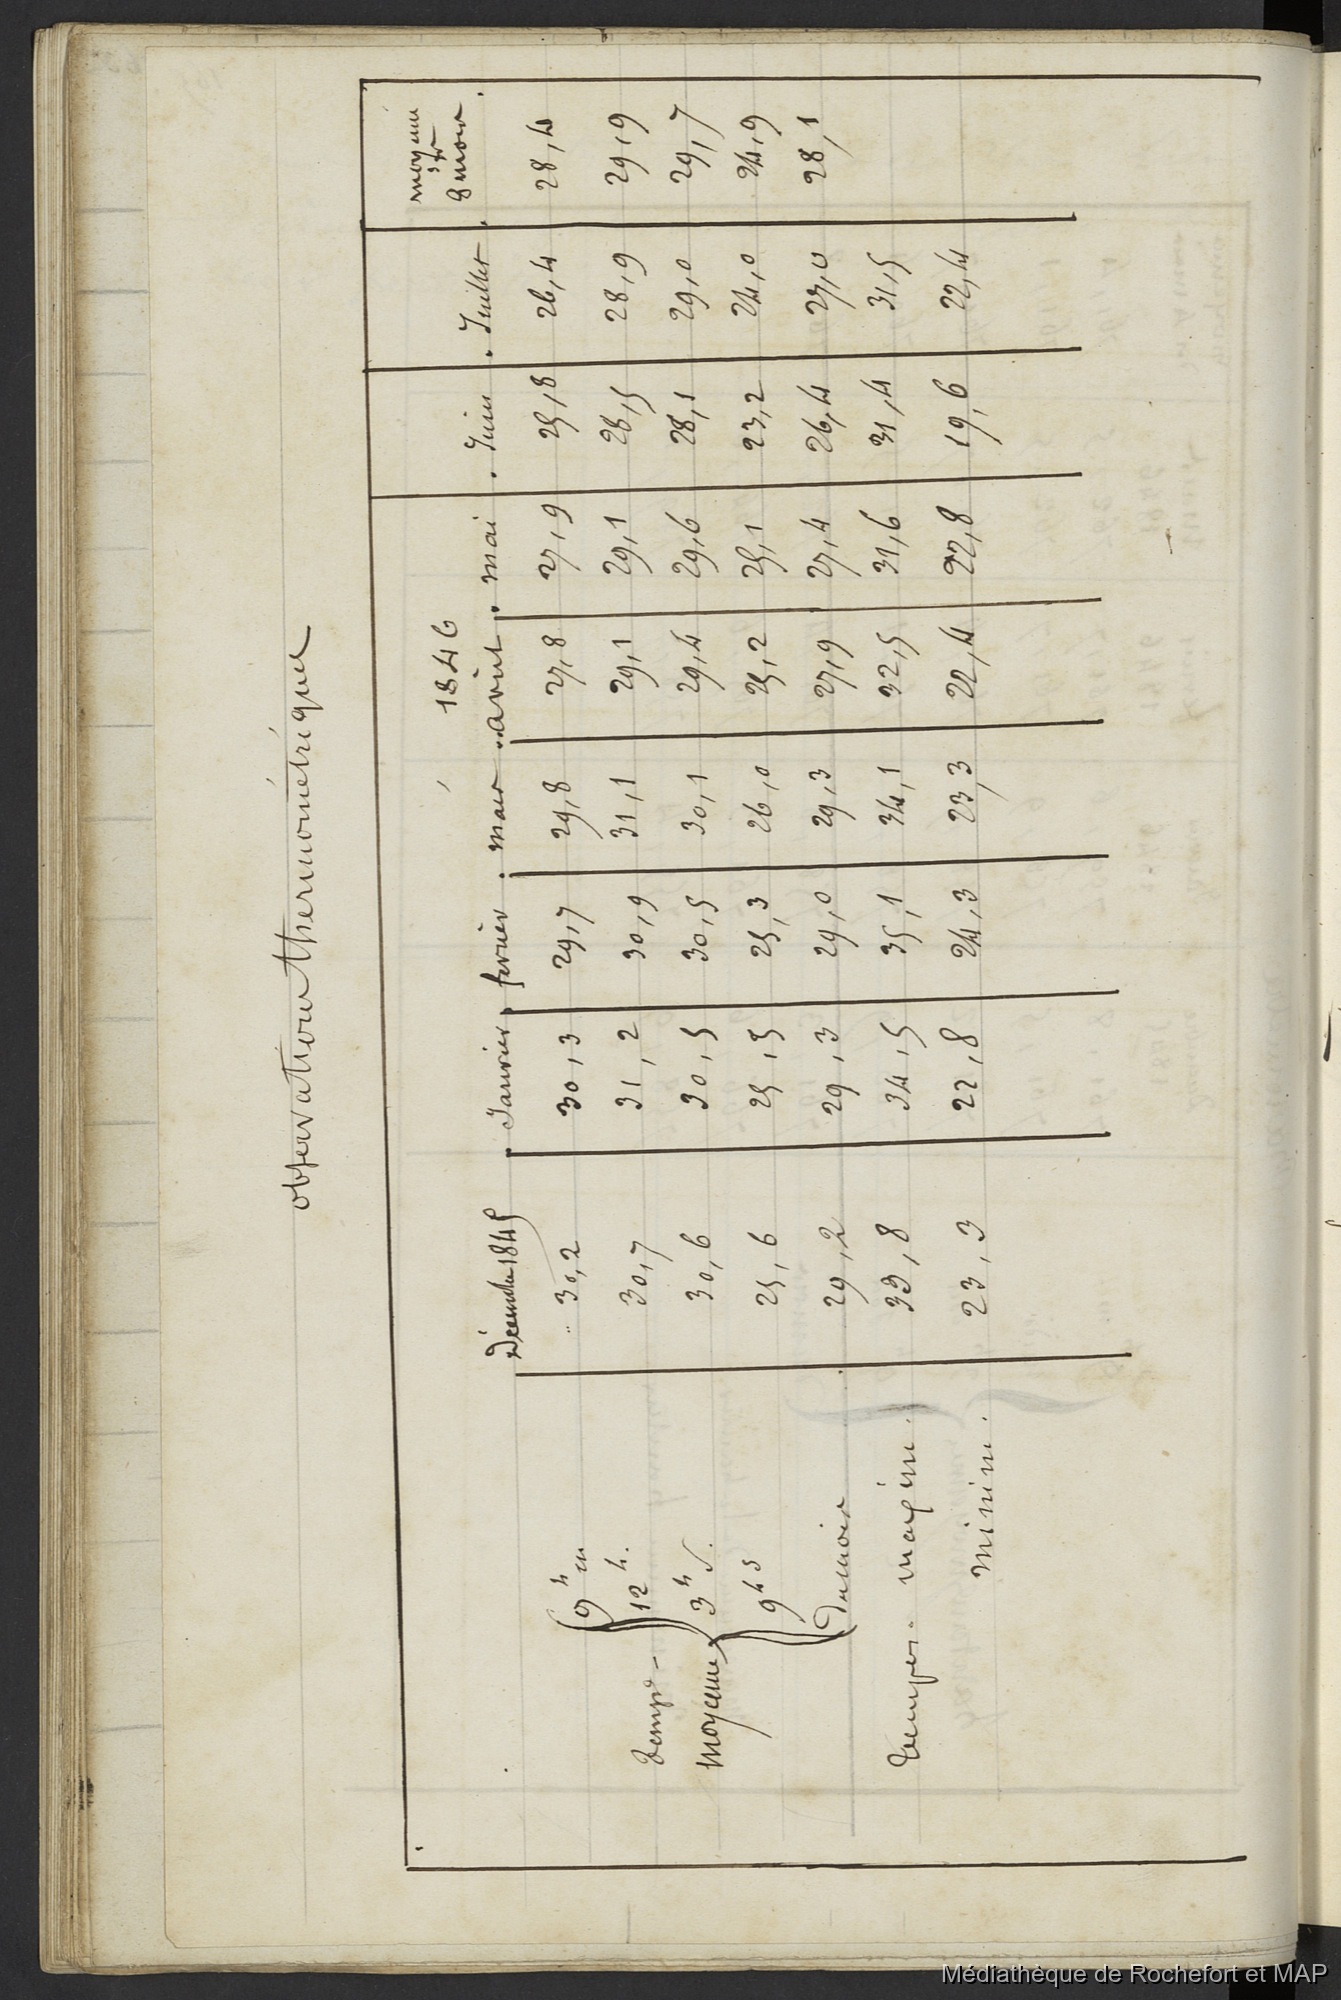 observations thermométriques
1846
Décembre 1845 . Janvier . fevrier . mars . avril . mai . Juin . Juillet . moyenne des 8 mois
9h m 30,2 30,3 29,7 29,8 27,8 27,9 25,8 26,4 28,4
Temp. 12h. 30,7 31,2 30,9 31,1 29,1 29,1 28,5 28,9 29,9
moyenne 3h s. 30,6 30,5 30,5 30,1 29,4 29,6 28,1 29,0 29,7
9h s 25,6 25,5 25,3 26,0 25,2 25,1 23,2 24,0 24,9
du mois 29,2 29,3 29,0 29,3 27,9 27,4 26,4 27,0 28,1
temper. maxim. 33,8 34,5 35,1 34,1 32,5 31,6 31,4 31,5
minim. 23,3 22,8 24,3 23,3 22,4 22,8 19,6 22,4
Médiathèque de Rochefort et MAP